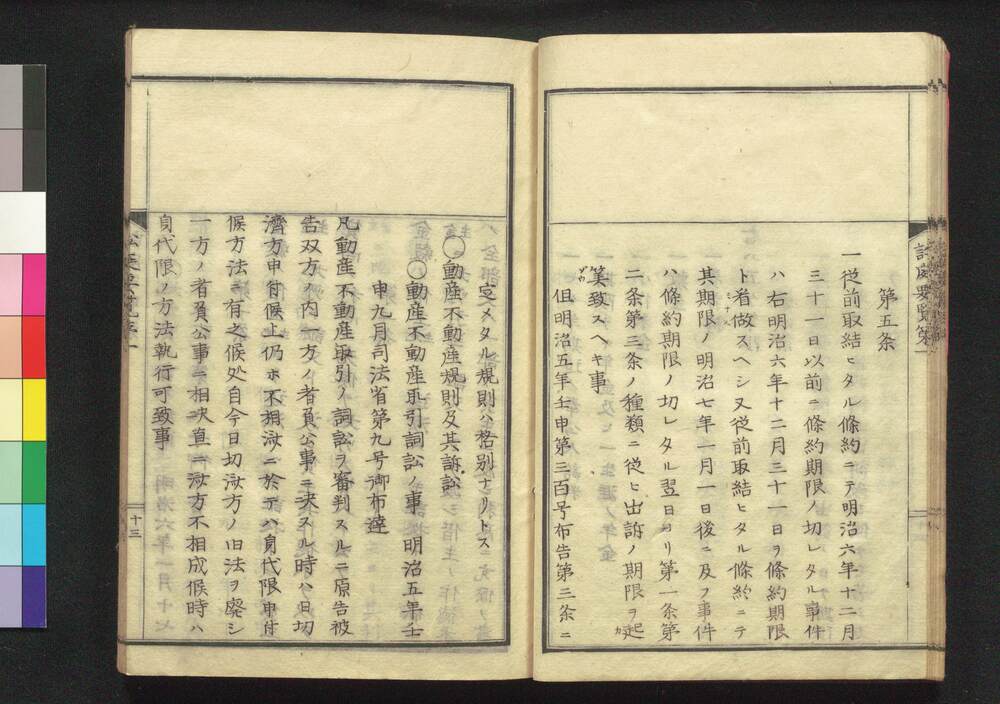 第五条
一従前取結ヒタル條約ニテ明治六年十二月
三十一日以前ニ條約期限ノ切レタル事件
ハ右明治六年十二月三十一日ヲ條約期限
ト看做スヘシ又従前取結ヒタル條約ニテ
其期限ノ明治七年一月一日後ニ及フ事件
ハ條約期限ノ切レタル翌日ヨリ第一条第
二条第三条ノ種類ニ従ヒ出訴ノ期限ヲ起
算致スヘキ事
但明治五年壬申第三百号布告第三条ニ
ハ全部定メタル規則ハ格別ナリトス
〇動産不動産規則及其訴訟
〇動産不動産取引詞訟ノ事 明治五年壬
申九月司法省第九号御布達
凡動産不動産取引ノ詞訟ヲ審判スルニ原告被
告双方ノ内一方ノ者負公事ニ決スル時ハ日切
濟方申付候上仍ホ不相濟ニ於テハ身代限申付
候方法モ有之候処自今日切濟方ノ旧法ヲ廃シ
一方ノ者負公事ニ相决直ニ濟方不相成候時ハ
身代限ノ方法執行可致事
十三